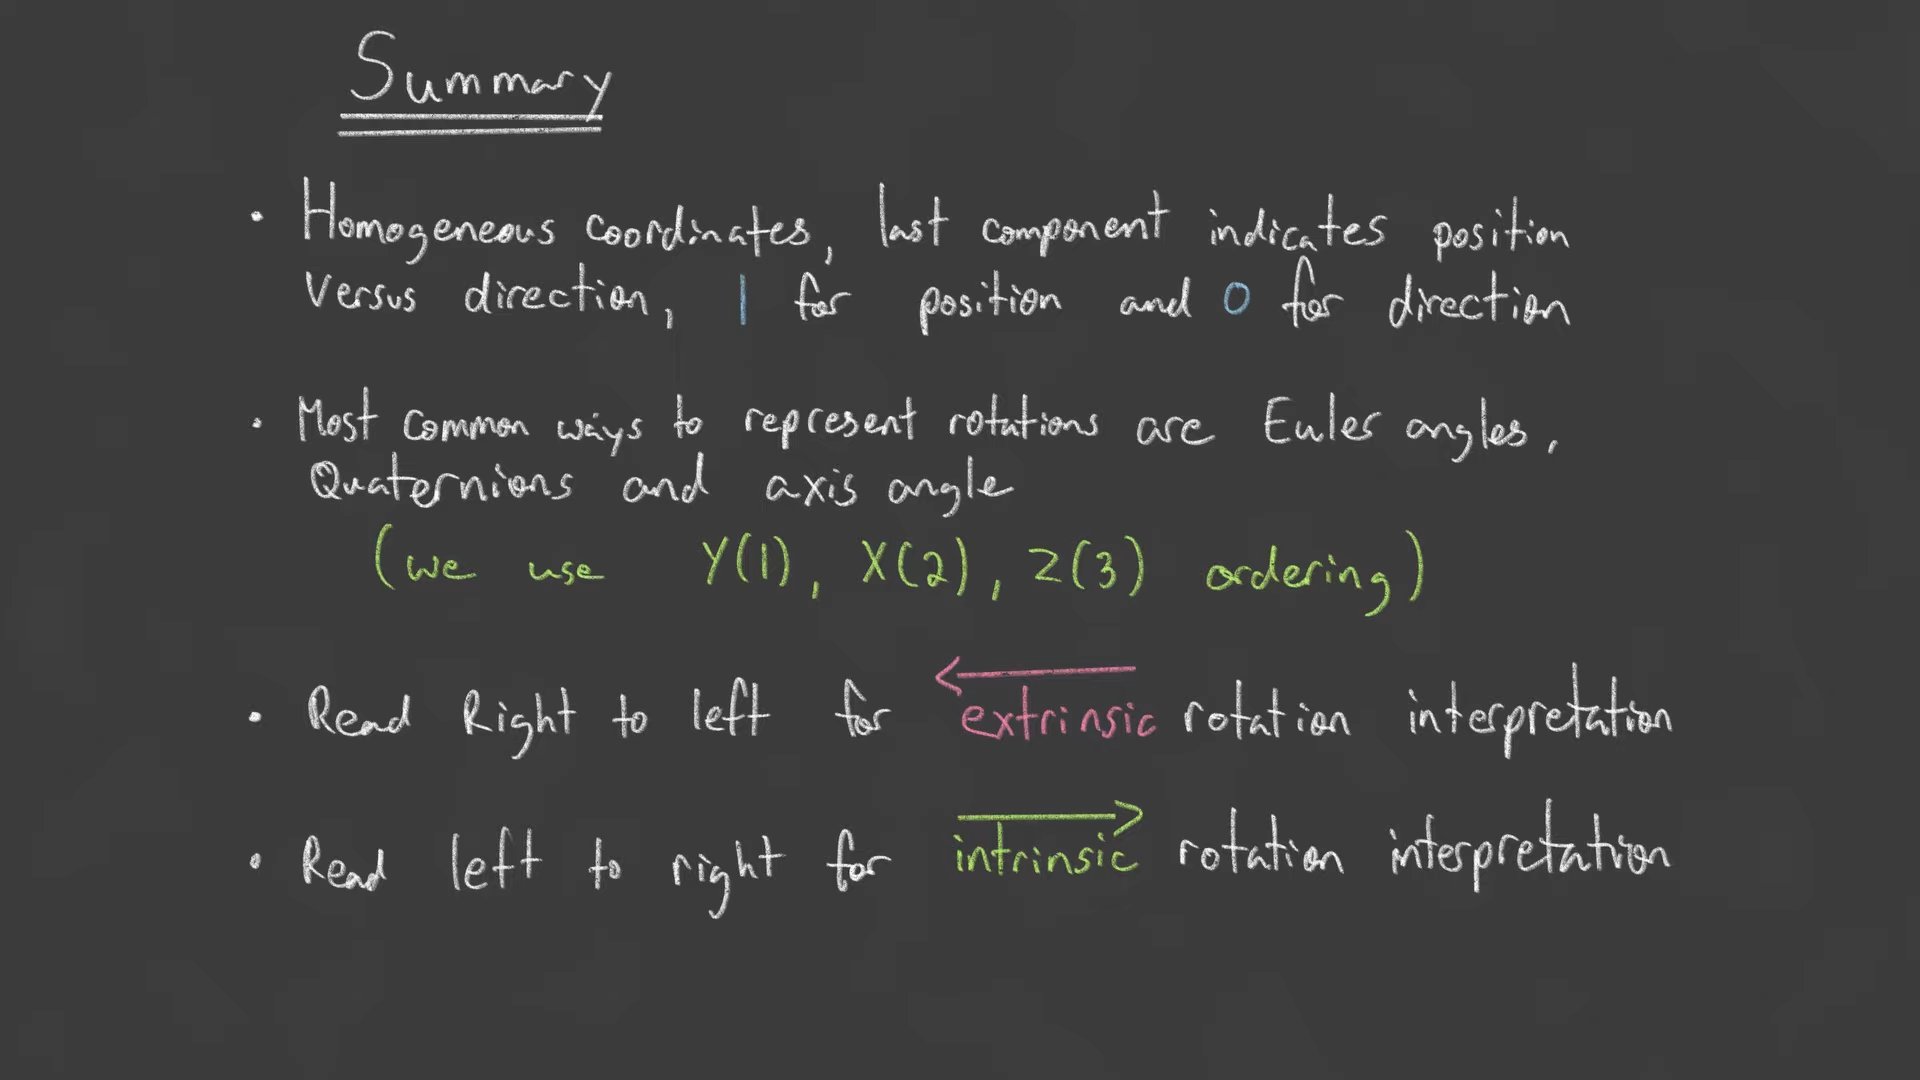 Summary
• Homogeneous coordinates, last component indicates position
versus direction, 1 for position and 0 for direction
• Most common ways to represent rotations are Euler angles,
Quaternions and axis angle
(we use Y(1), X(2), Z(3) ordering)
• Read Right to left for extrinsic rotation interpretation
• Read left to right for intrinsic rotation interpretation